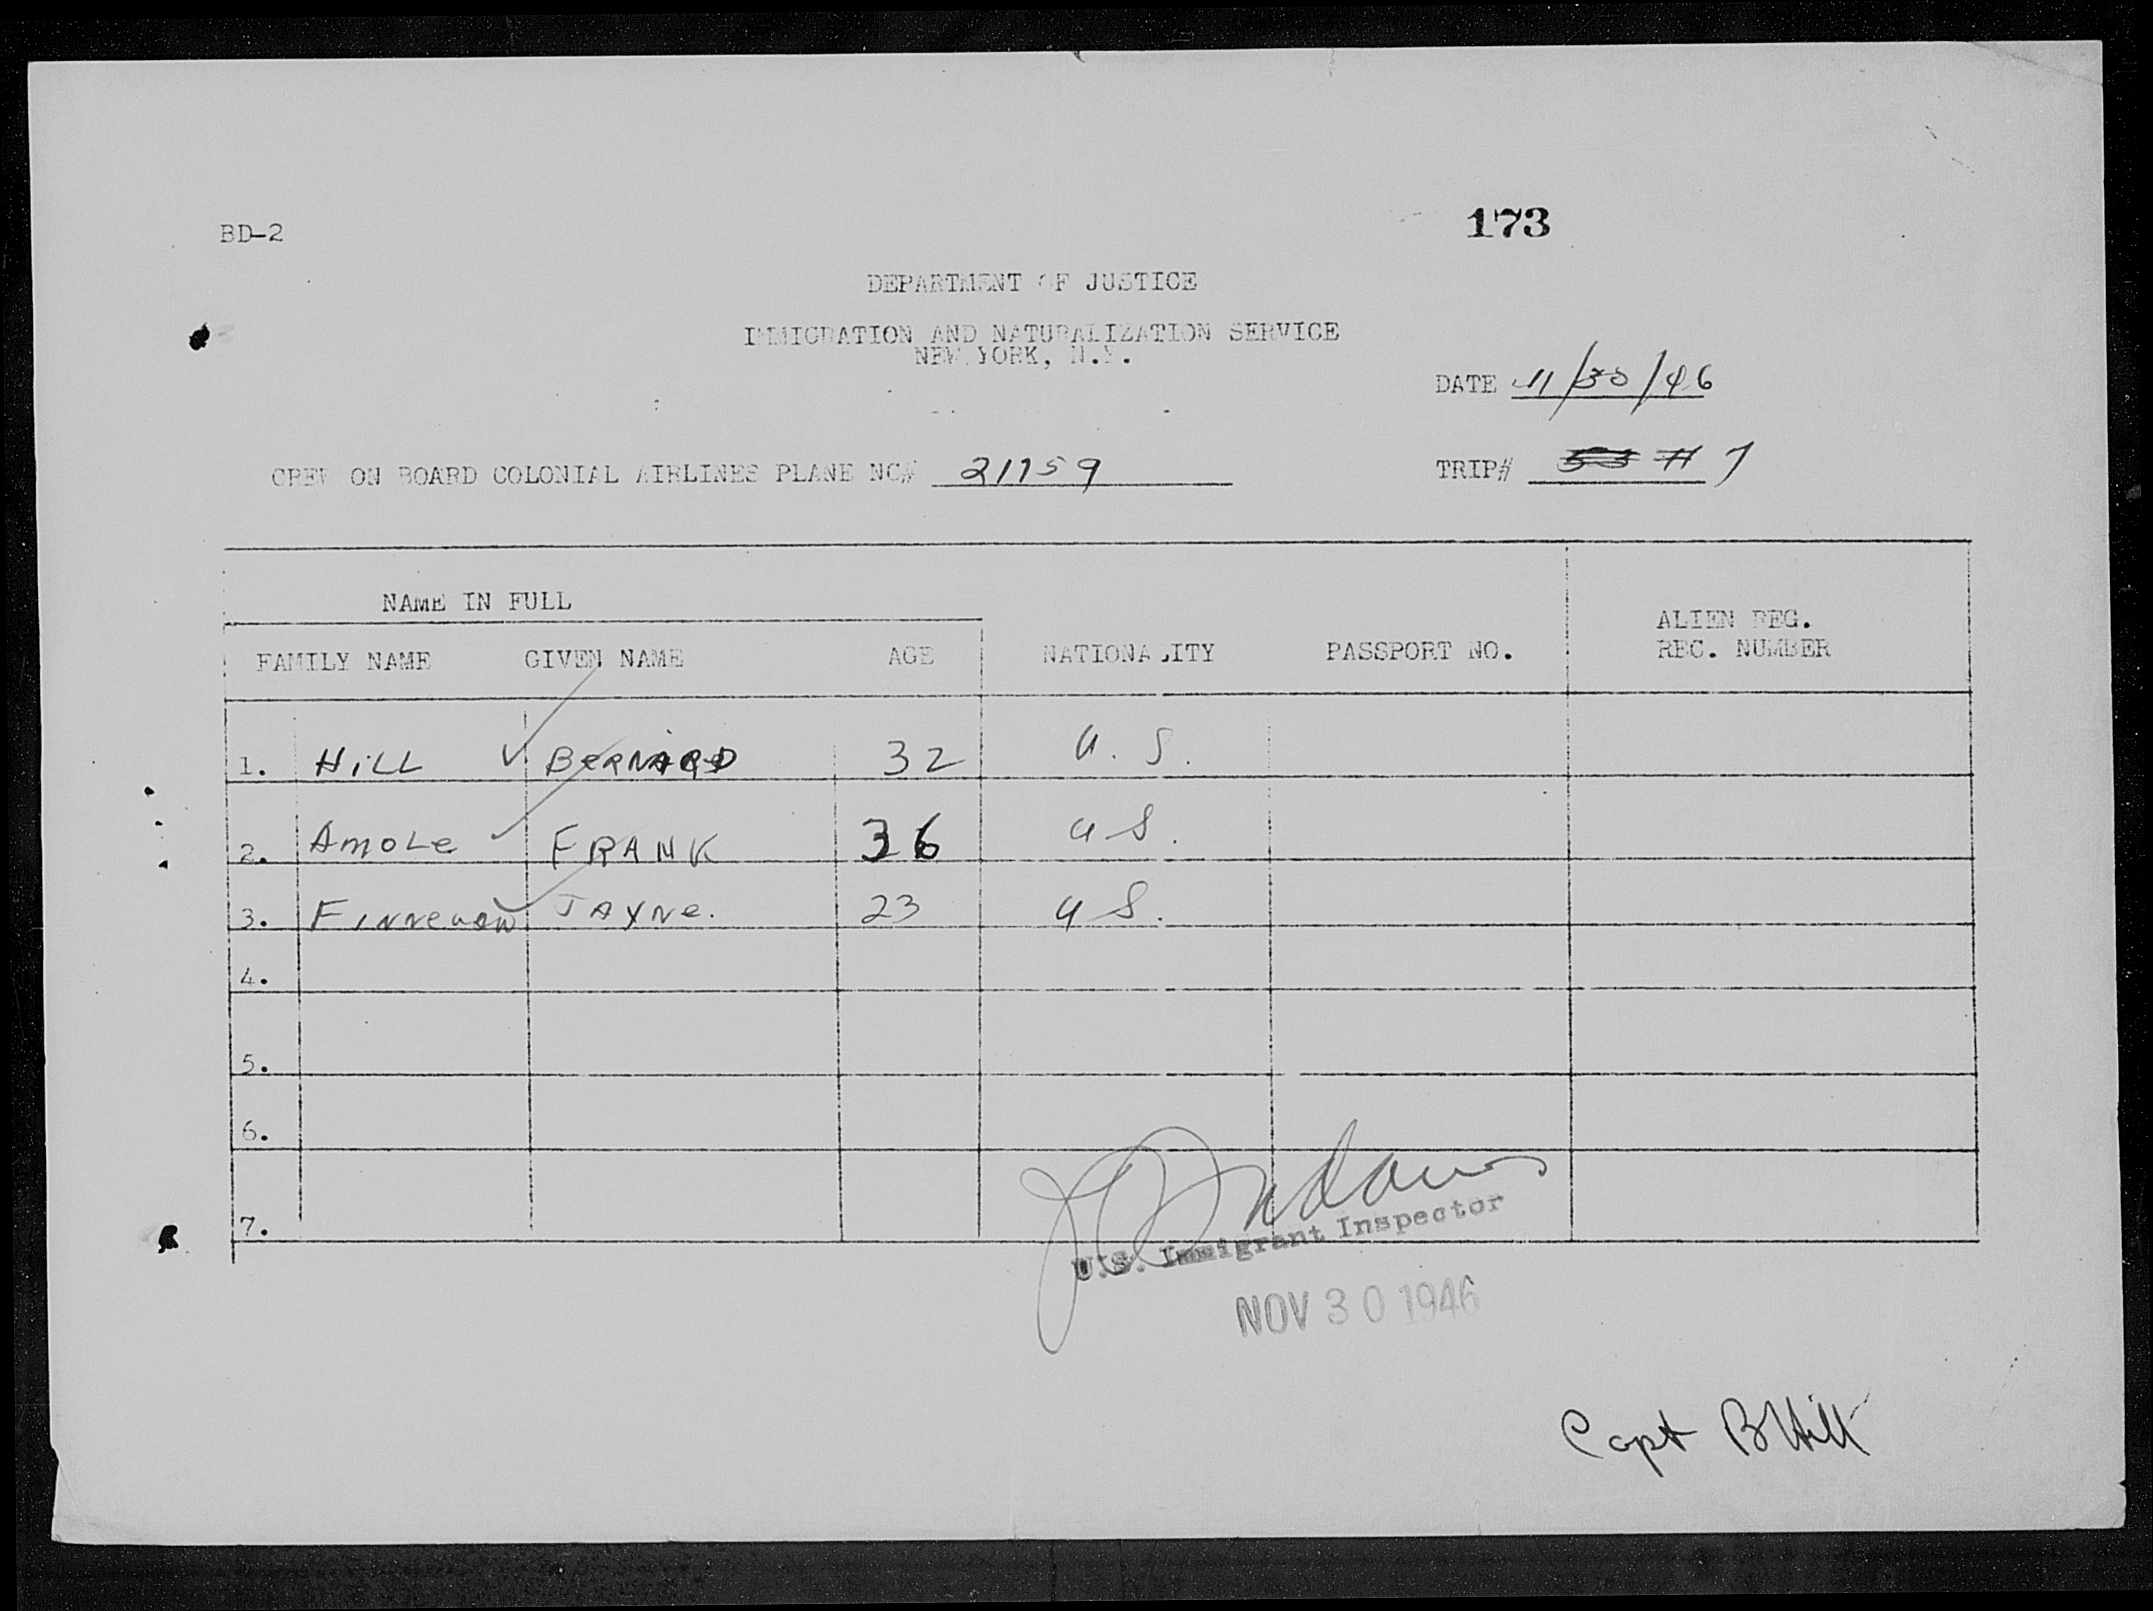 173
BD-2
DEPARTMENT OF JUSTICE
IMMIGRATION AND NATURALIZATION SERVICE
NEW YORK, N.Y.
DATE 11/30/46
CREW ON BOARD COLONIAL AIRLINES PLANE NC# 21759
TRIP# 7
NAME IN FULL
FAMILY NAME GIVEN NAME AGE NATIONALITY PASSPORT NO. ALIEN REG. REC. NUMBER
1. HILL BERNARD 32 U.S.
2. AMOLE FRANK 36 US.
3. JAYNE. 23 US.
4.
5.
6.
7.
U.S. Immigrant Inspector
NOV 30 1946
Capt B Hill